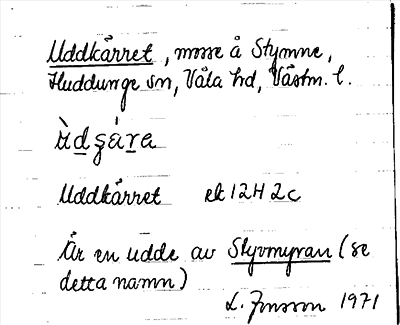 Uddkärret, mosse å Stymne,
Huddunge sn, Våla hd, Västm. l.
ùdʒára
Uddkärret ek 12H 2c
Är en udde av Styvmyran (se
detta namn)
L. Jonsson 1971